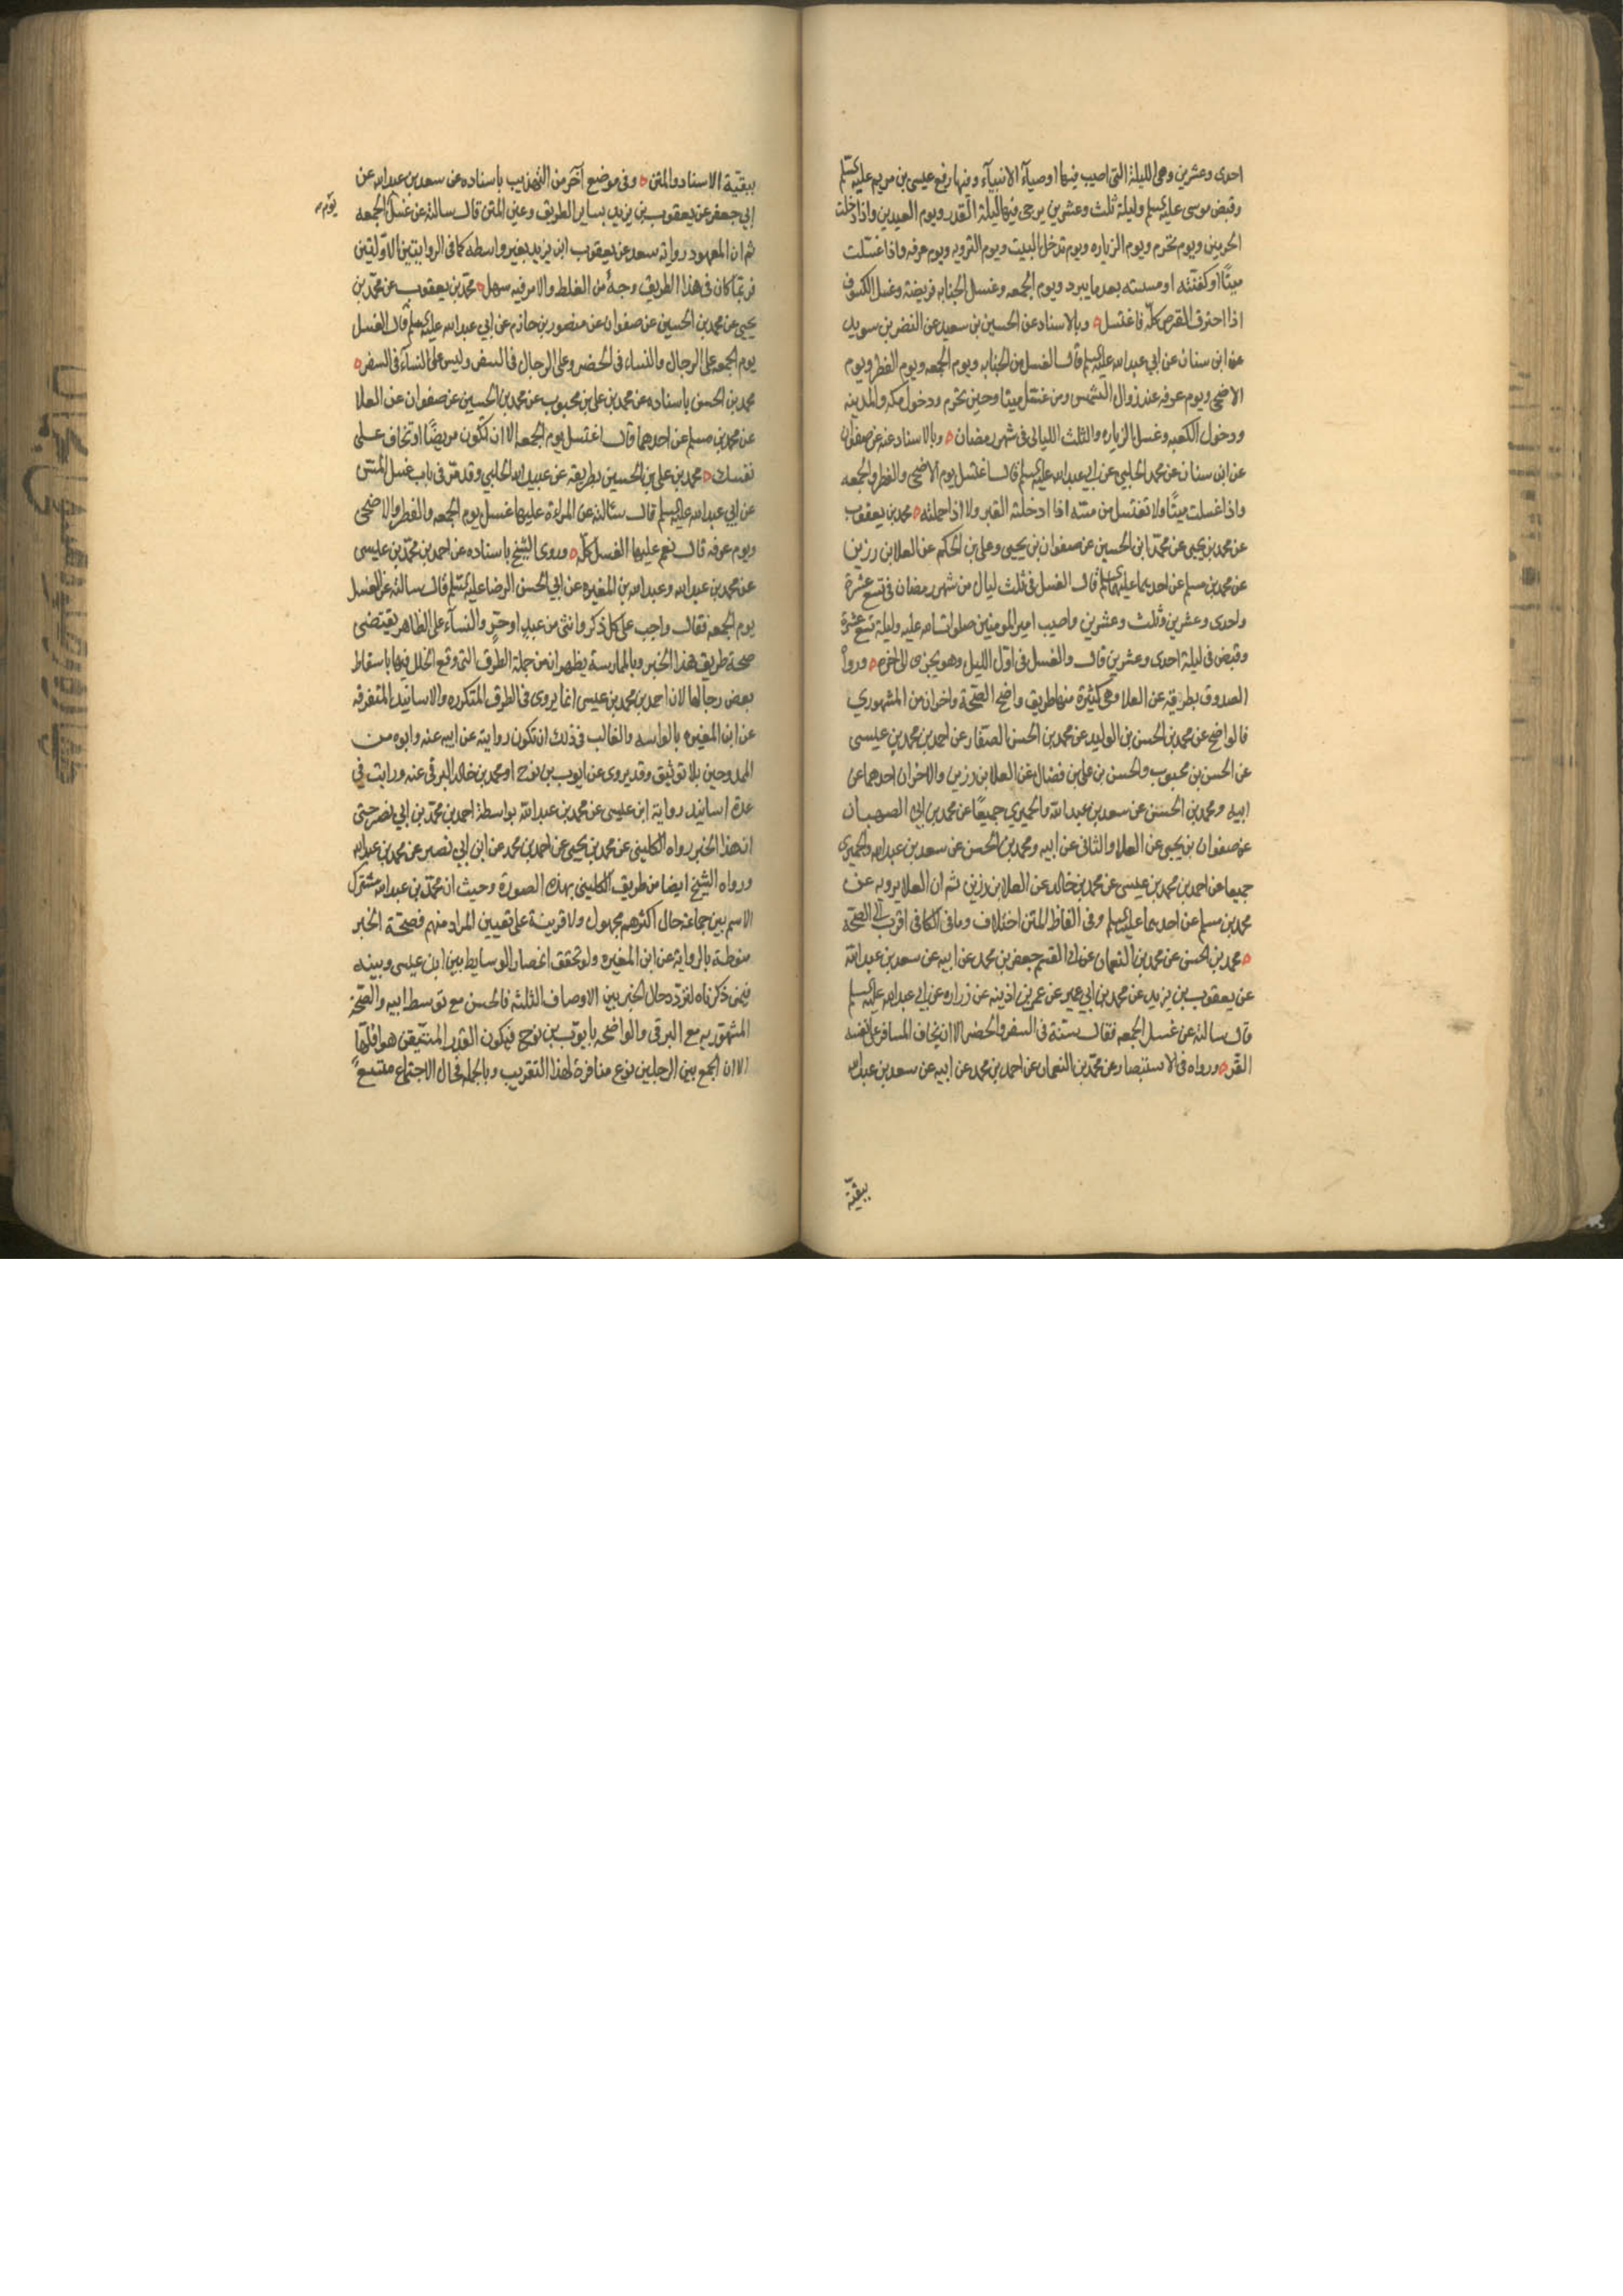 احدى وعشرين وهى الليلة التى اصيب فيها اوصيآء الانبيآء وفيها رفع عيسى بن مريم عليه السلم
وقبض موسى عليه السلم وليلة ثلث وعشرين يرجى فيها ليلة القدر ويوم العيدين واذا دخلت
الحرمين ويوم تحرم ويوم الزياره ويوم تدخل البيت ويوم الترويه ويوم عرفه واذا غسّلت
ميتًا او كفنته او مسسته بعد ما يبرد ويوم الجمعه وغسل الجنابه فريضة وغسل الكسوف
اذا احترق القرص كلّه فاغتسل وبالاسناد عن الحسين بن سعيد عن النضر بن سويد
عن ابن سنان عن ابي عبد الله عليه السلم قال الغسل من الجنابه ويوم الجمعه ويوم الفطر ويوم
الاضحى ويوم عرفه عند زوال الشمس ومن غسّل ميتا وحين تحرم ودخول مكه والمدينه
ودخول الكعبه وغسل الزياره والثلث الليالى فى شهر رمضان وبالاسناد عنه عن صفوان
عن ابن سنان عن محمد الحلبي عن ابي عبد الله عليه السلم قال اغتسل يوم الاضحى والفطر والجمعه
واذا غسلت ميتًا ولا تغتسل من مسّه اذا ادخلته القبر ولا اذا حملته محمد بن يعقوب
عن محمد بن يحيى عن محمّد ابن الحسين عن صفوان بن يحيى وعلى بن الحكم عن العلا بن رزين
عن محمد بن مسلم عن احدهما عليهما السلم قال الغسل فى ثلث ليال من شهر رمضان فى تسع عشرة
واحدى وعشرين وثلث وعشرين واصيب امير المومنين صلوات الله عليه وليلة تسع عشرة
وقبض فى ليلة احدى وعشرين قال والغسل فى اوّل الليل وهو يجزى الى اخره وروا
الصدوق بطريقه عن العلا وهى كثيرة منها طريق واضح الصّحة واخران من المشهوري
فالواضح عن محمد بن الحسن بن الوليد عن محمد بن الحسن الصفّار عن احمد بن محمد بن عيسى
عن الحسن بن محبوب والحسن بن على بن فضال عن العلا بن رزين والاخران احدهما عن
ابيه ومحمد بن الحسن عن سعد بن عبد الله والحميري جميعًا عن محمد بن ابي الصهبان
عن صفوان بن يحيى عن العلا والثانى عن ابيه ومحمد بن الحسن عن سعد بن عبد الله والحميرى
جميعا عن احمد بن محمد بن عيسى عن محمد بن خالد عن العلا بن رزين ثم ان العلا يرويه عن
محمد بن مسلم عن احدهما عليه السلم وفى الفاظ المتن اختلاف وما فى الكافى اقرب الى الصّحّه
محمد بن الحسن عن محمد بن النعمان عن ابي القسم جعفر بن محمد عن ابيه عن سعد بن عبد الله
عن يعقوب بن يزيد عن محمد بن ابي عمير عن عمر بن اذينه عن زراره عن ابي عبد الله عليه السلم
قال سالته عن غسل الجمعه فقال سنّة فى السفر والحضر الا ان يخاف المسافر على نفسه
القرّ ورواه فى الاستبصار عن محمّد بن النعمان عن احمد بن محمد عن ابيه عن سعد بن عبد الله
ببقيّة
ببقيّة الاسناد والمتن وفى موضع آخر من التهذيب باسناده عن سعد بن عبد الله عن
ابي جعفر عن يعقوب بن يزيد بساير الطريق وعين المتن قال سالته عن غسل الجمعه
يوم
ثم ان المعهود رواية سعد عن يعقوب ابن يزيد بغير واسطه كما فى الروايتين الاوليتين
فربّما كان فى هذا الطريق وجه من الغلط والامر فيه سهل محمّد بن يعقوب عن محمّد بن
يحيى عن محمد بن الحسين عن صفوان عن منصور بن حازم عن ابي عبد الله عليه السلم قال الغسل
يوم الجمعه على الرجال والنساء فى الحضر وعلى الرجال فى السفر وليس على النسآء فى السفر
محمد بن الحسن باسناده عن محمد بن على بن محبوب عن محمد بن الحسين عن صفوان عن العلا
عن محمد بن مسلم عن احدهما قال اغتسل يوم الجمعه الا ان تكون مريضًا او تخاف على
نفسك محمد بن على بن الحسين بطريقه عن عبيد الله الحلبي وقد مرّ فى باب غسل المسّ
عن ابي عبد الله عليه السلم قال سئالته عن المراة عليها غسل يوم الجمعه والفطر والاضحى
ويوم عرفه قال نعم عليها الغسل كلّه وروى الشيخ باسناده عن احمد بن محمّد بن عليسى
عن محمد بن عبد الله وعبد الله بن المغيره عن ابي الحسن الرضا عليه السلم قال سالته عن الغسل
يوم الجمعه فقال واجب على كل ذكر وانثى من عبد او حرّ والنسآء على الظاهر يقتضى
صحة طريق هذا الخبر وبالممارسة يظهر انه من جملة الطرق التى وقع الخلل فيها باسقاط
بعض رجالها لان احمد بن محمد بن عيسى انما يروى فى الطرق المتكرره والاسانيد المتفرقه
عن ابن المغيره بالواسه والغالب فى ذلك ان تكون روايته عن ابيه عنه وابوه من
الممدوحين بلا توثيق وقد يروى عن ايوب بن نوح او محمد بن خالد البرقى عنه ورايت في
عدة اسانيد رواية ابن عيسى عن محمد بن عبد الله بواسطة احمد بن محمّد بن ابي نصر حتى
ان هذا الخبر رواه الكلينى عن محمد بن يحيى عن احمد بن محمد عن ابن ابي نصر عن محمد بن عبد الله
ورواه الشيخ ايضا من طريق الكلينى بهذه الصورة وحيث ان محمّد بن عبد الله مشترك
الاسم بين جماعة حال اكثرهم مجهول ولا قرينة على تعيين المراد منهم فصحّة الخبر
منوطة بالرواية عن ابن المغيره ولو تحقق انحصار الوسايط بين ابن عيسى وبينه
فيمن ذكرناه لتردّد حال الخبر بين الاوصاف الثلثه فالحسن مع توسط ابيه والصّحّة
المشهوريه مع البرقى والواضحه بايوّب بن نوح فيكون القدر المتيقن هو اقلّها
الا ان الجمع بين الرجلين نوع منافرة لهذا التقريب وبالجمله فحال الاجتماع ملتبع